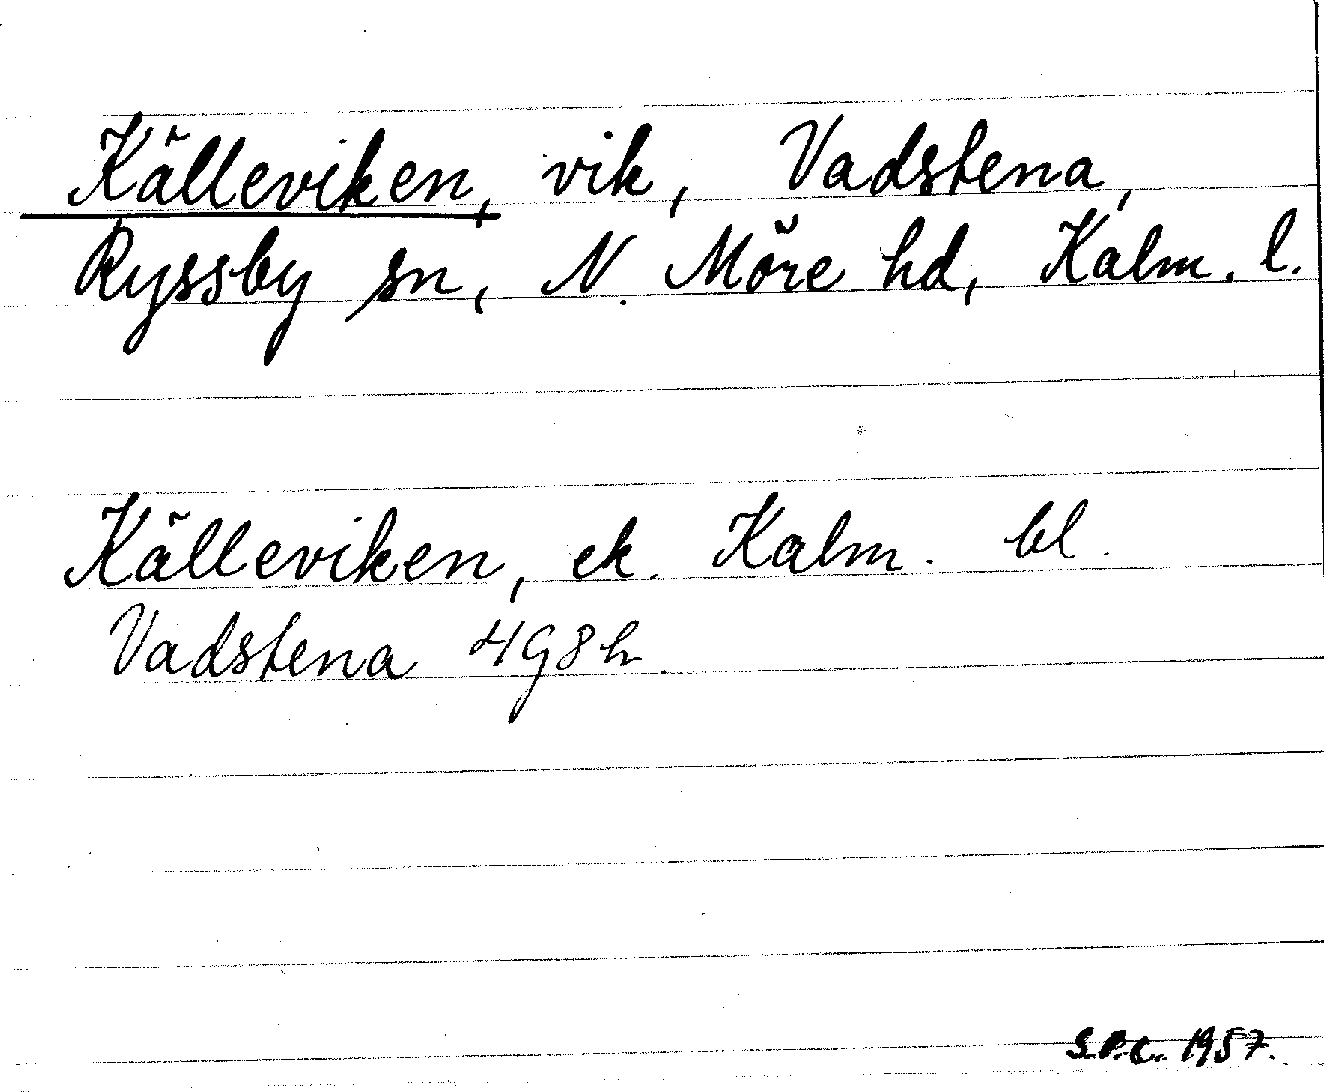 Källeviken, vik, Vadstena,
Ryssby sn, N. Möre hd, Kalm. l.
Källeviken, ek. Kalm. bl.
Vadstena 4g8h.
S.P.C. 1957.